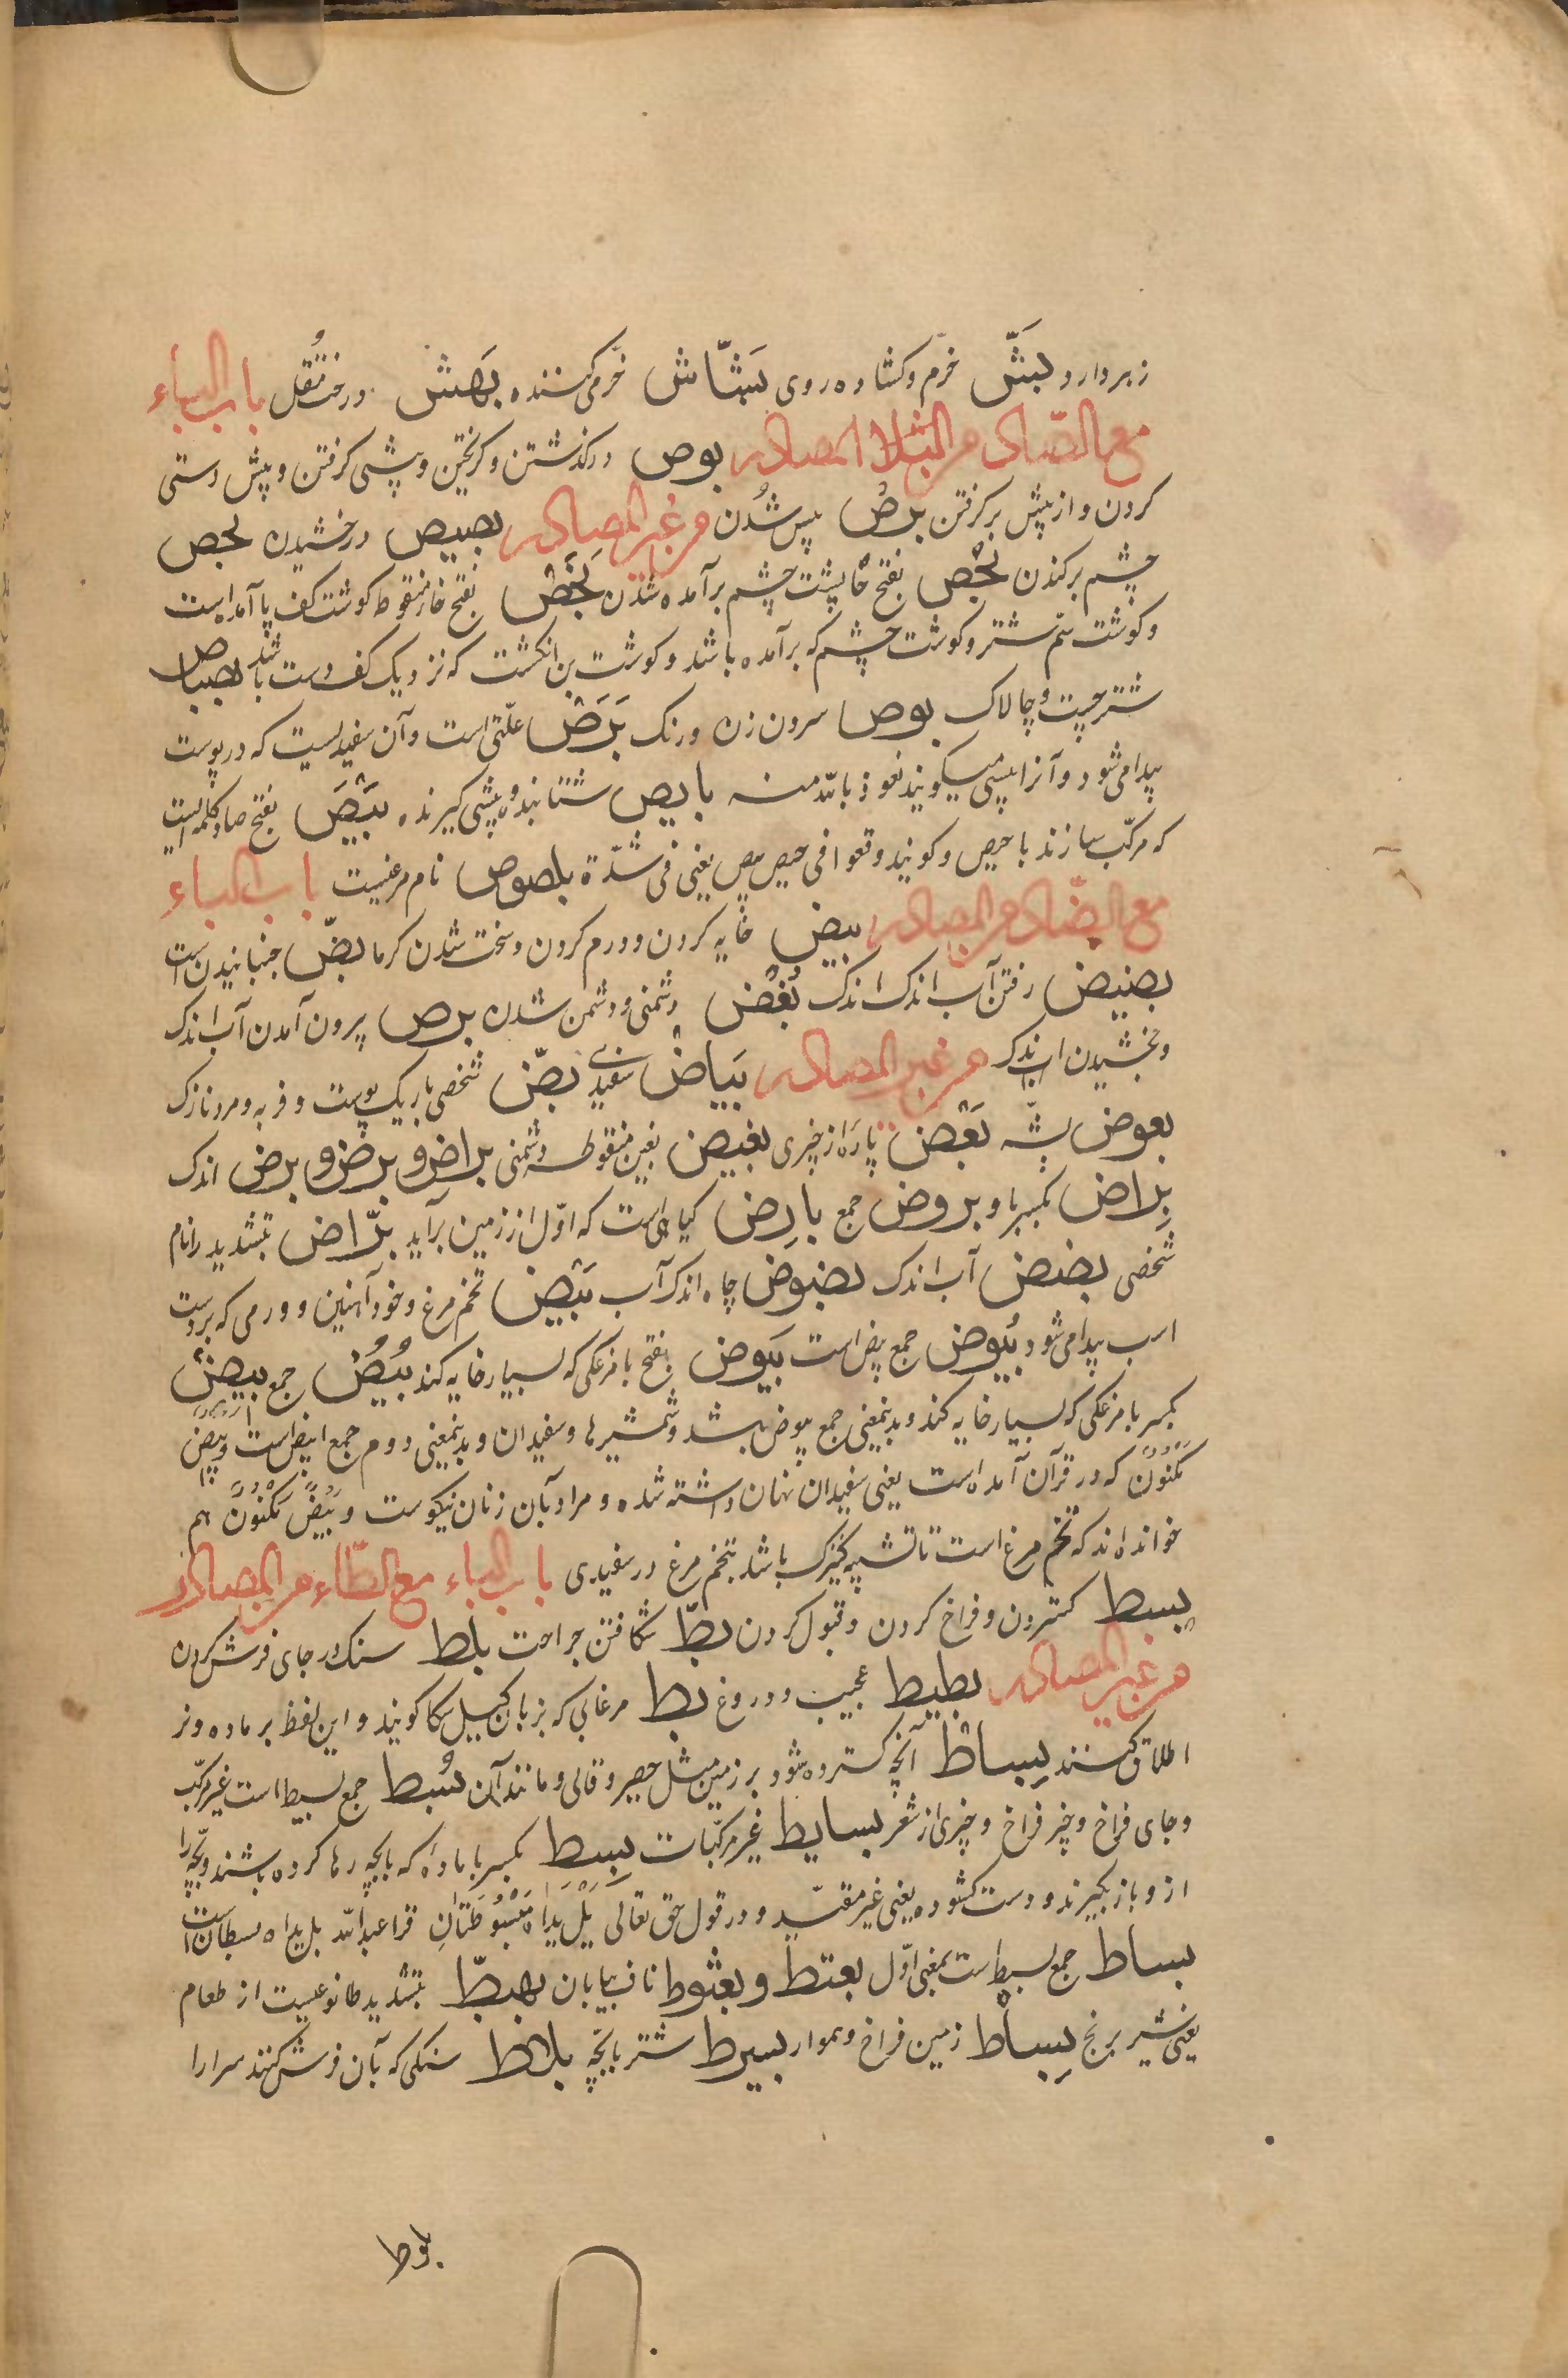 زبر دارد بَشّ خرّم و کشاده روی بَشّاش خرّمی کننده بَهش درخت مُقل باب الباء
مع الصّاد من المصادر بوص درکذشتن و کریختن و پیشی کرفتن و پیش دستی
کردن و از پیش برکرفتن برص پیس شدن من غیر المصادر بصیص درخشیدن بخص
چشم برکندن بخص بفتح خا پشت چشم برآمده شدن بَخَص بفتح خاء منقوط کوشت کف پا آمده است
و کوشت سم شتر و کوشت چشم که برآمده باشد و کوشت بن انکشت که نزدیک کف دست باشد بصباص
شتر چست و چالاک بوص سرون زن و رنک بَرَص علّتی است و آن سفیدیست که در پوست
پیدا می شود و آنرا پیسی میکویند نعوذ بالله منه بایص شتابنده و پیشی کیرنده بَیْصَ بفتح صاد کلمه ایست
که مرکّب سازند با حیص و کویند وقعوا فی حیص بیص یعنی فی شدّة بلصوص نام مرغیست باب الباء
مع الضّاد من المصادر بیض خایه کردن و ورم کردن و سخت شدن کرما بضّ جنبانیدن است
بضیض رفتن آب اندک اندک بُغْض دشمنی و دشمن شدن برض بیرون آمدن آب اندک
و بخشیدن اندک من غیر المصادر بَیاض سفیدی بضّ شخصی باریک پوست و فربه و مرد نازک
بعوض پشّه بَعْض پاره از چیزی بغیض بغین منقوطه دشمنی براض و برض و برض اندک
بِراض بکسر با و بروض جمع بارِض کیاهی است که اوّل از زمین برآید برّاض بتشدید را نام
شخصی بضض آب اندک بضوض چاه اندک آب بَیْض تخم مرغ و خود آهنین و ورمی که بر دست
اسب پیدا می شود بُیُوض جمع بیض است بَیوض بفتح با مرغکی که بسیار خایه کند بُیُض جمع بیض
بکسر با مرغکی که بسیار خایه کند و بدینمعنی جمع بیوض باشد و شمشیرها و سفیدان و بدینمعنی دوم جمع ابیض است و بیض
مکنون که در قرآن آمده است یعنی سفیدان نهان داشته شده و مراد بآن زنان نیکوست و بَیْضٌ مَکْنُونٌ هم
خوانده اند که تخم مرغ است تا تشبیه کنیزک باشد بتخم مرغ در سفیدی باب الباء مع الطّاء من المصادر
بسط کستردن و فراخ کردن و قبول کردن بطّ شکافتن جراحت بلط سنک در جای فرش کردن
من غیر المصادر بطیط عجیب و دروغ بط مرغابی که بزبان کیل سکا کویند و این لفظ بر ماده و نر
اطلاق کنند بِساط آنچه کسترده شود بر زمین مثل حصیر و قالی و مانند آن بُسُط جمع بسیط است غیر مرکّب
و جای فراخ و چیز فراخ و چیزی از شعر بسایط غیر مرکّبات بِسط بکسر با ماده که با بچه رها کرده باشند و بچه را
ازو باز نکیرند و دست کشوده یعنی غیر مقیّد و در قول حق تعالی بَلْ یَداهُ مَبْسُوطَتانِ قرا عبد الله بل یداه بسطان است
بساط جمع بسیط است بمعنی اوّل بعثط و بعثوط ناف بیابان بهطّ بتشدید طا نوعیست از طعام
یعنی شیر برنج بِساط زمین فراخ و هموار بسیط شتر با بچّه بلاط سنکی که بآن فرش کنند سرا را
بلوط